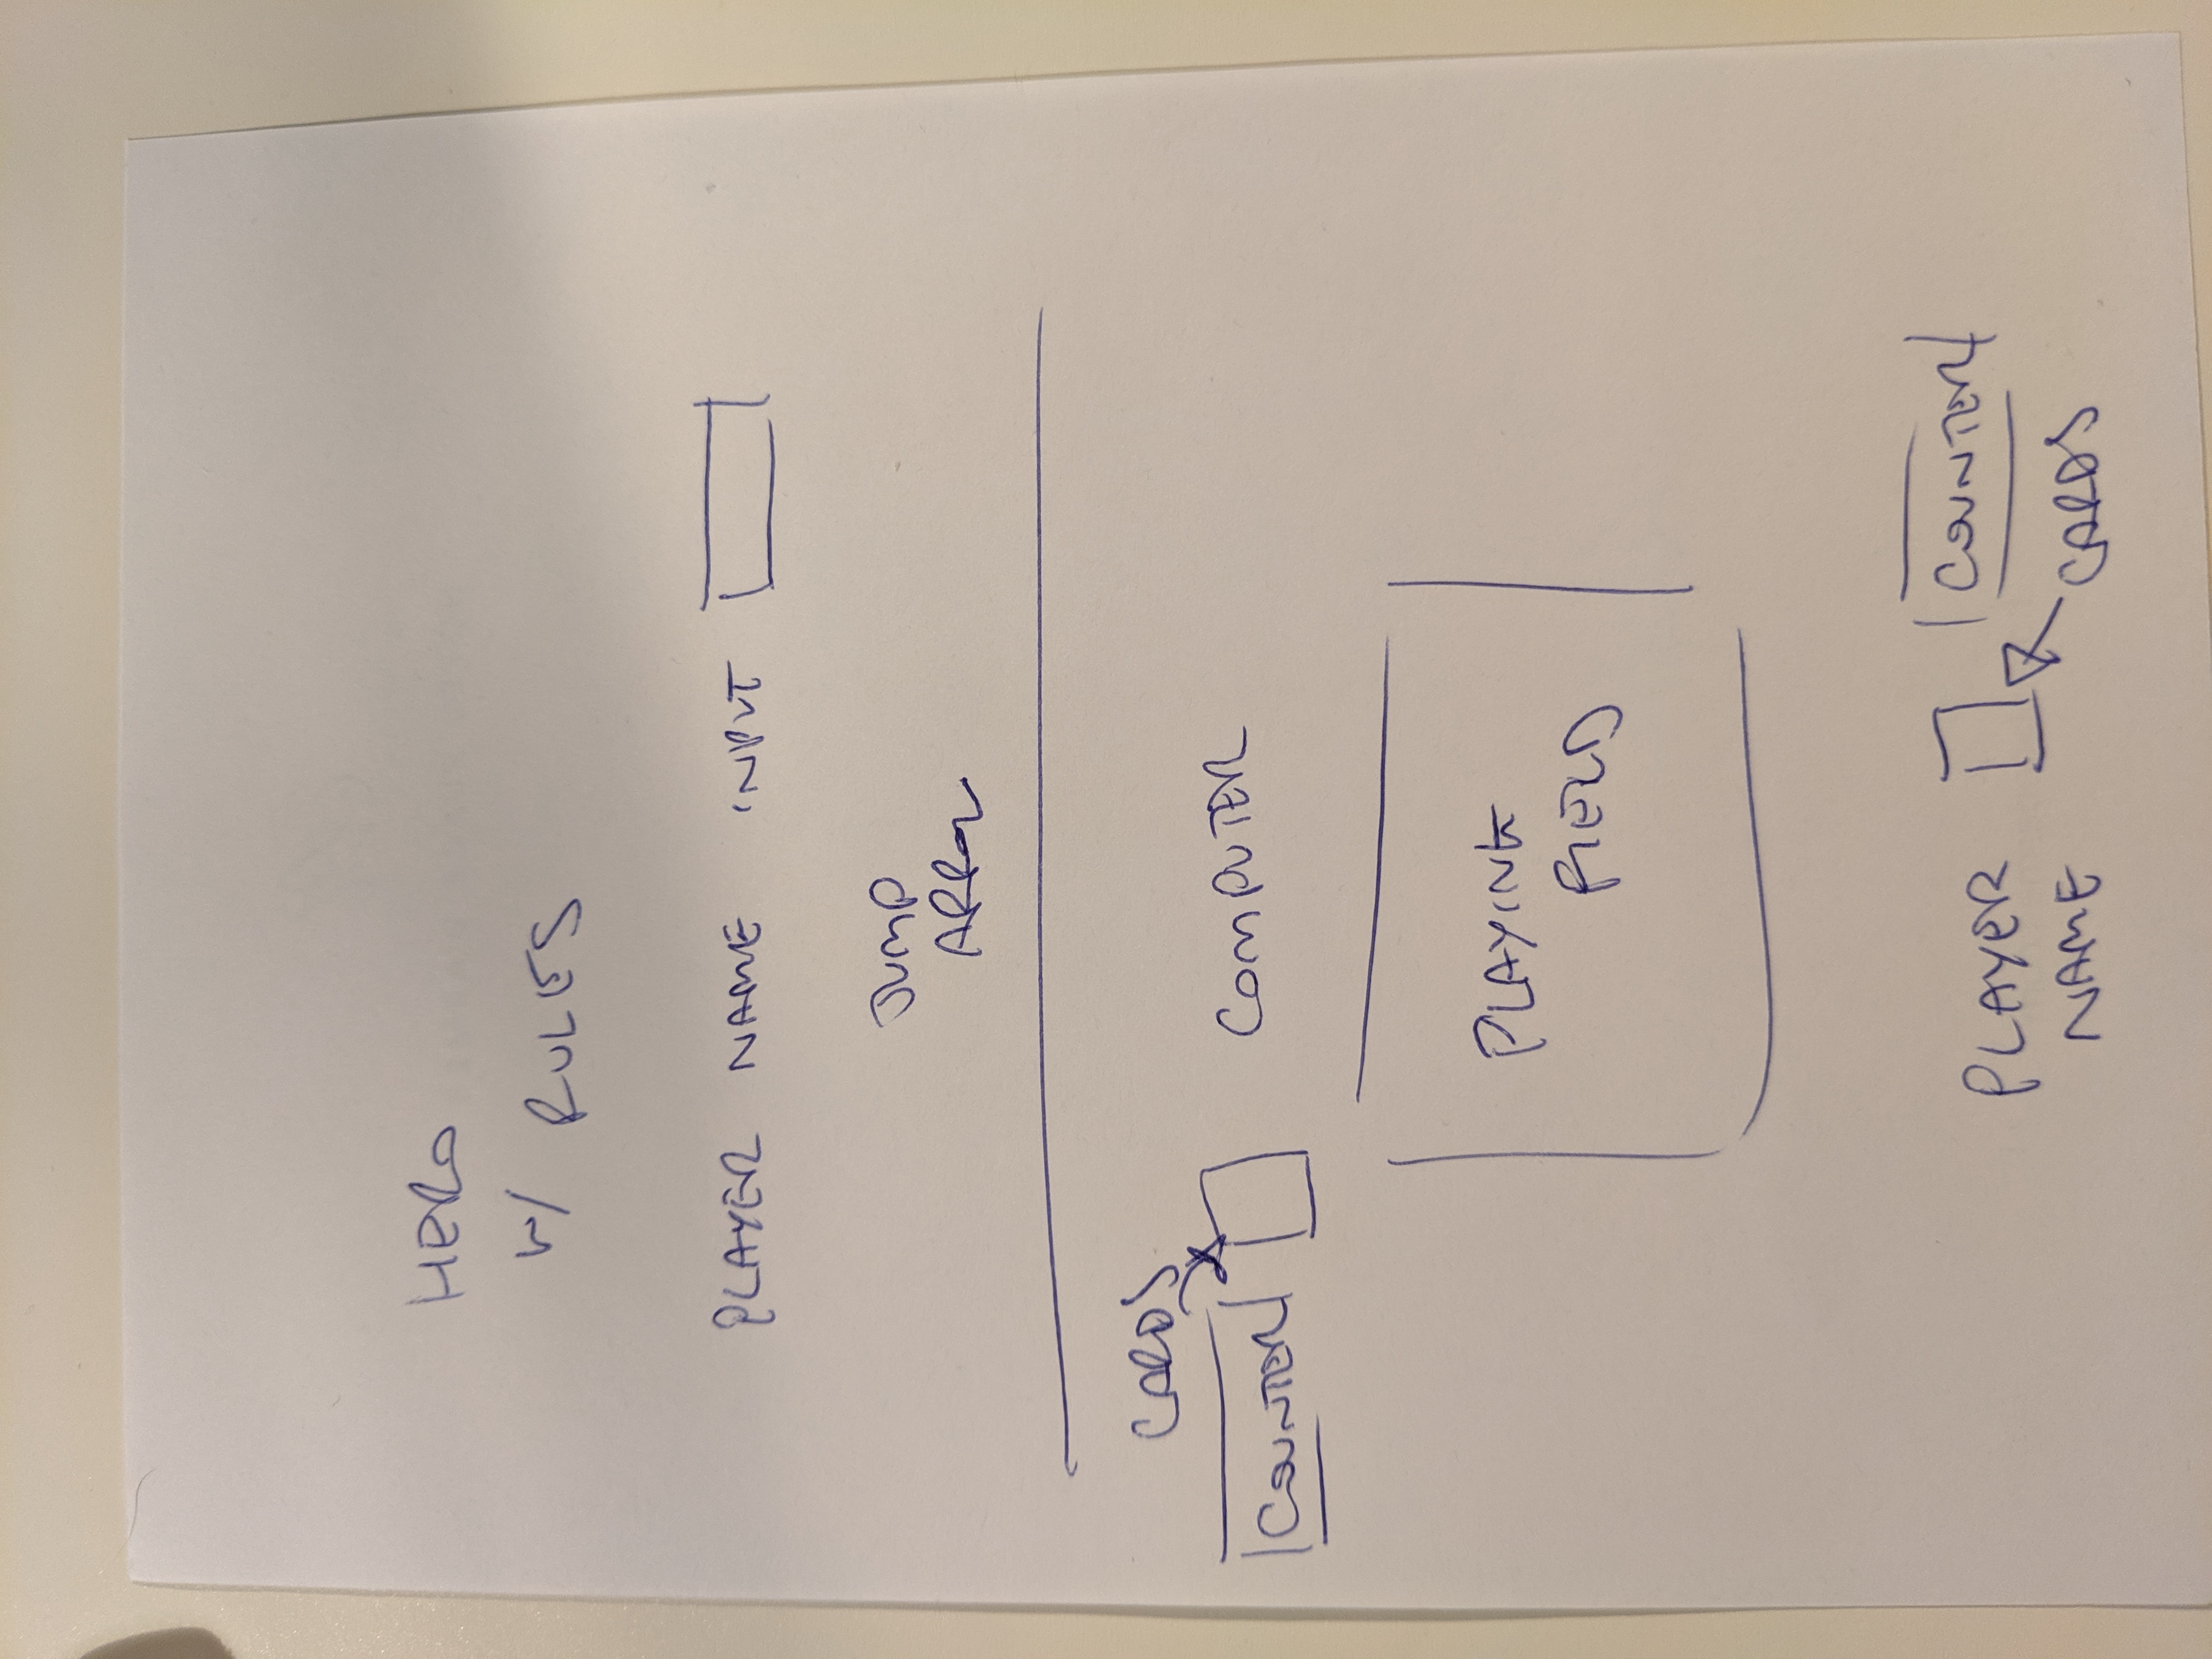 HERO
W/ RULES
PLAYER NAME INPUT
JUMP
ARROW
CARDS
COUNTER
COMPUTER
PLAYING
FIELD
PLAYER
NAME
COUNTER
CARDS